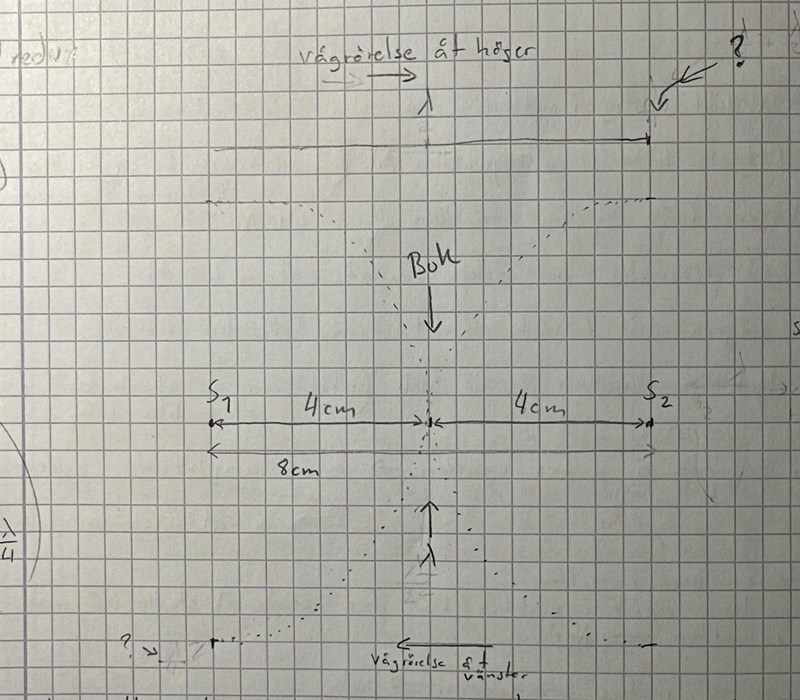 vågrörelse åt höger
?
λ
Buk
S1
4cm
4cm
S2
8cm
λ
λ
4
?
vågrörelse åt
vänster